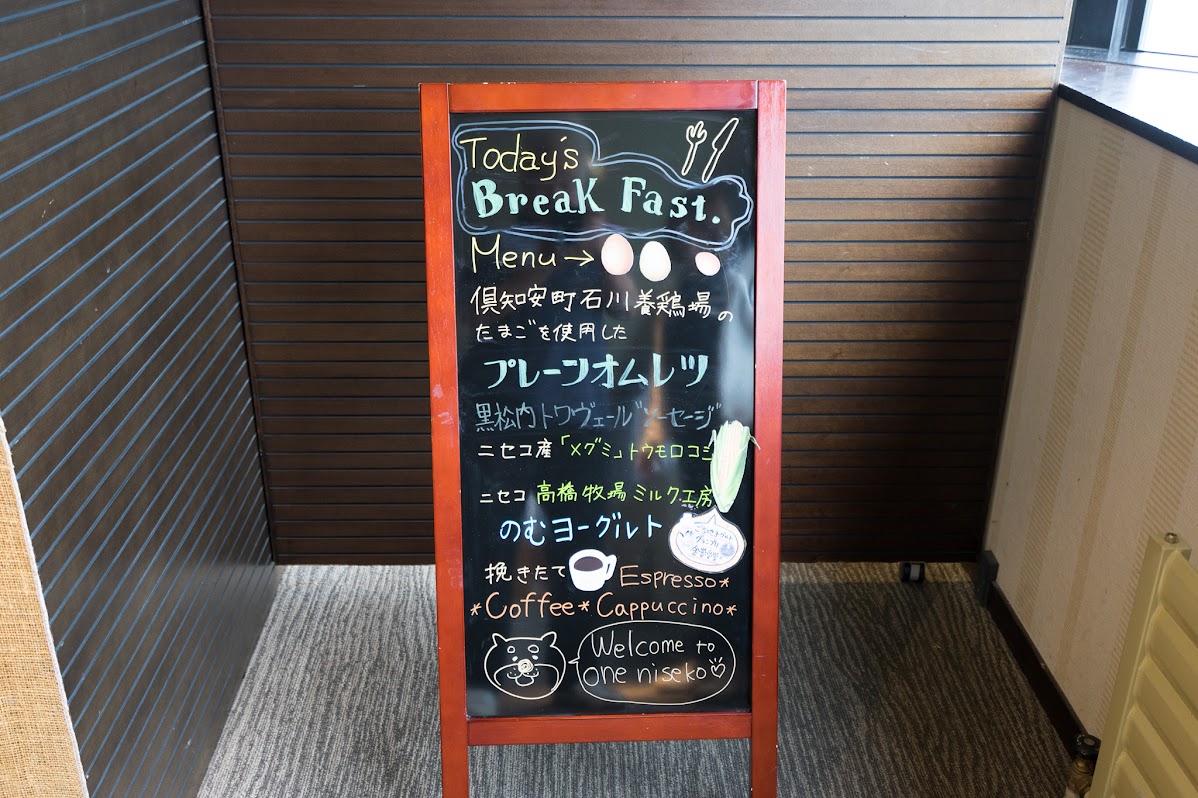 Today's
Break Fast.
Menu→
倶知安町石川養鶏場の
たまごを使用した
プレーンオムレツ
黒松内トワヴェール"ソーセージ"
ニセコ産「メグミ」トウモロコシ
ニセコ 高橋牧場ミルク工房
のむヨーグルト
挽きたて Espresso*
*Coffee*Cappuccino*
Welcome to
one niseko